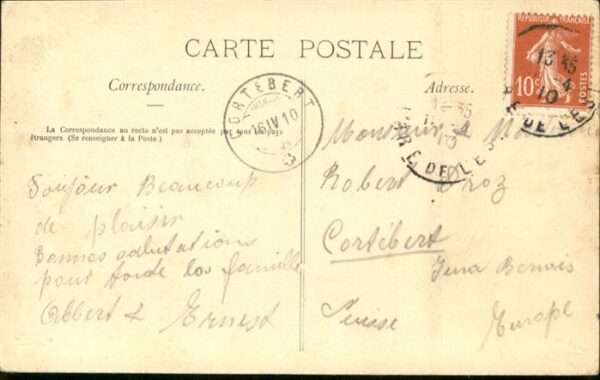 CARTE POSTALE
Correspondance.
Adresse.
La Correspondance au recto n'est pas acceptée par tous les pays
étrangers. (Se renseigner à la Poste.)
RÉPUBLIQUE FRANÇAISE
10c
POSTES
CORTÉBERT
16 IV 10
13 35
10
RE DE LE
E DE LE
Toujour Beaucoup
de plaisir
Bonnes salutations
pour toute la famille
Albert & Ernest
Monsieur
Robert Droz
Cortébert
Jura Bernois
Suisse
Europe